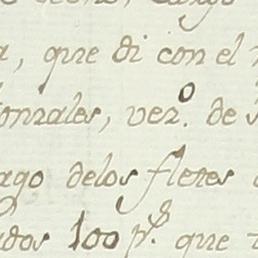 , que di con el
Gonzales, vez.º de
ago delos fletes
ados 100 p.s que